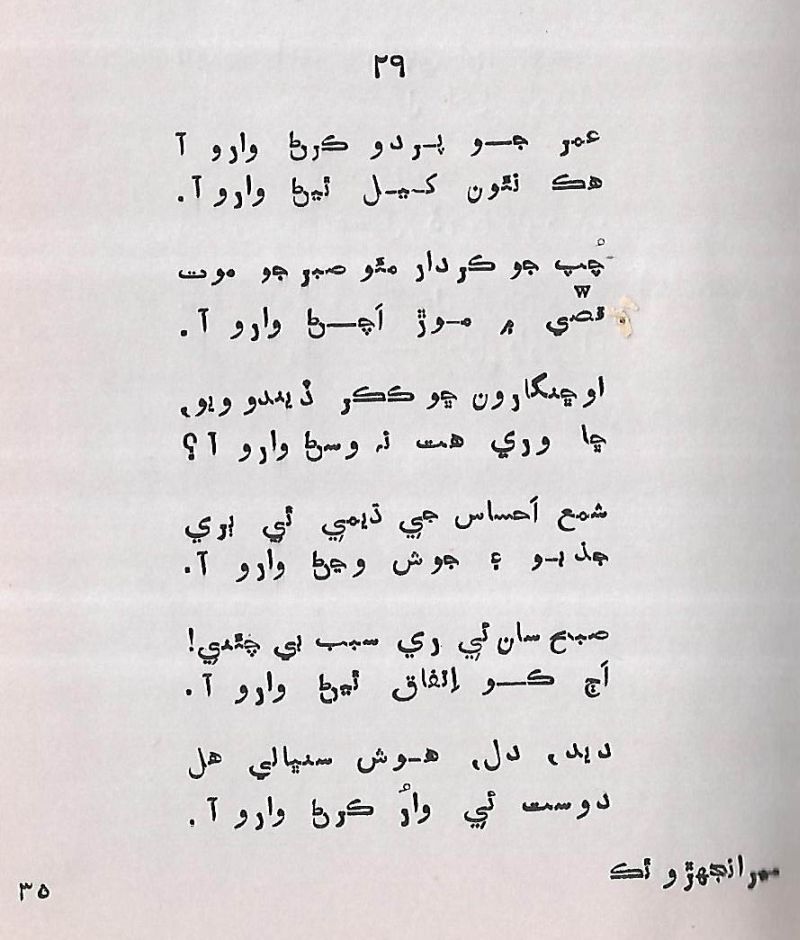 ۲۹
عمر جو پردو ڪرڻ وارو آ
هڪ نئون کيل ٿيڻ وارو آ.
چُپ جو ڪردار مئو صبر جو موت
قصي ۾ موڙ اَچڻ وارو آ.
اوڇنگارون ڇو ڪڪر ڏيندو ويو،
ڇا وري هت نہ وسڻ وارو آ؟
شمع اَحساس جي ڌيمي ٿي ٻري
جذبو ۽ جوش وڃڻ وارو آ.
صبح سان ئي ري سبب ٻي چئندي!
اَڄ ڪو اِتفاق ٿيڻ وارو آ.
ديد، دل، هوش سنڀالي هل
دوست ئي وارُ ڪرڻ وارو آ.
رانجهڙو ٿڪ
۳۵